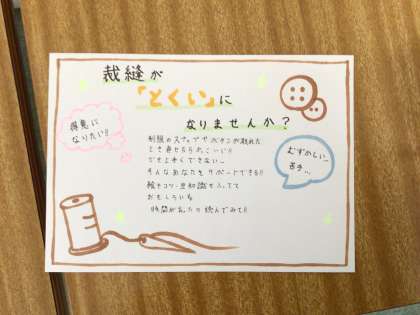 裁縫が
「とくい」に
なりませんか？
得意に
なりたい!!
むずかしい…
苦手…
制服のスナップやボタンが取れた
とき直せたらかっこいい!!
でも上手くできない…
そんなあなたをサポートできる!!
絵とコツ・豆知識も入ってて
おもしろいね
時間があったら読んでみて!!